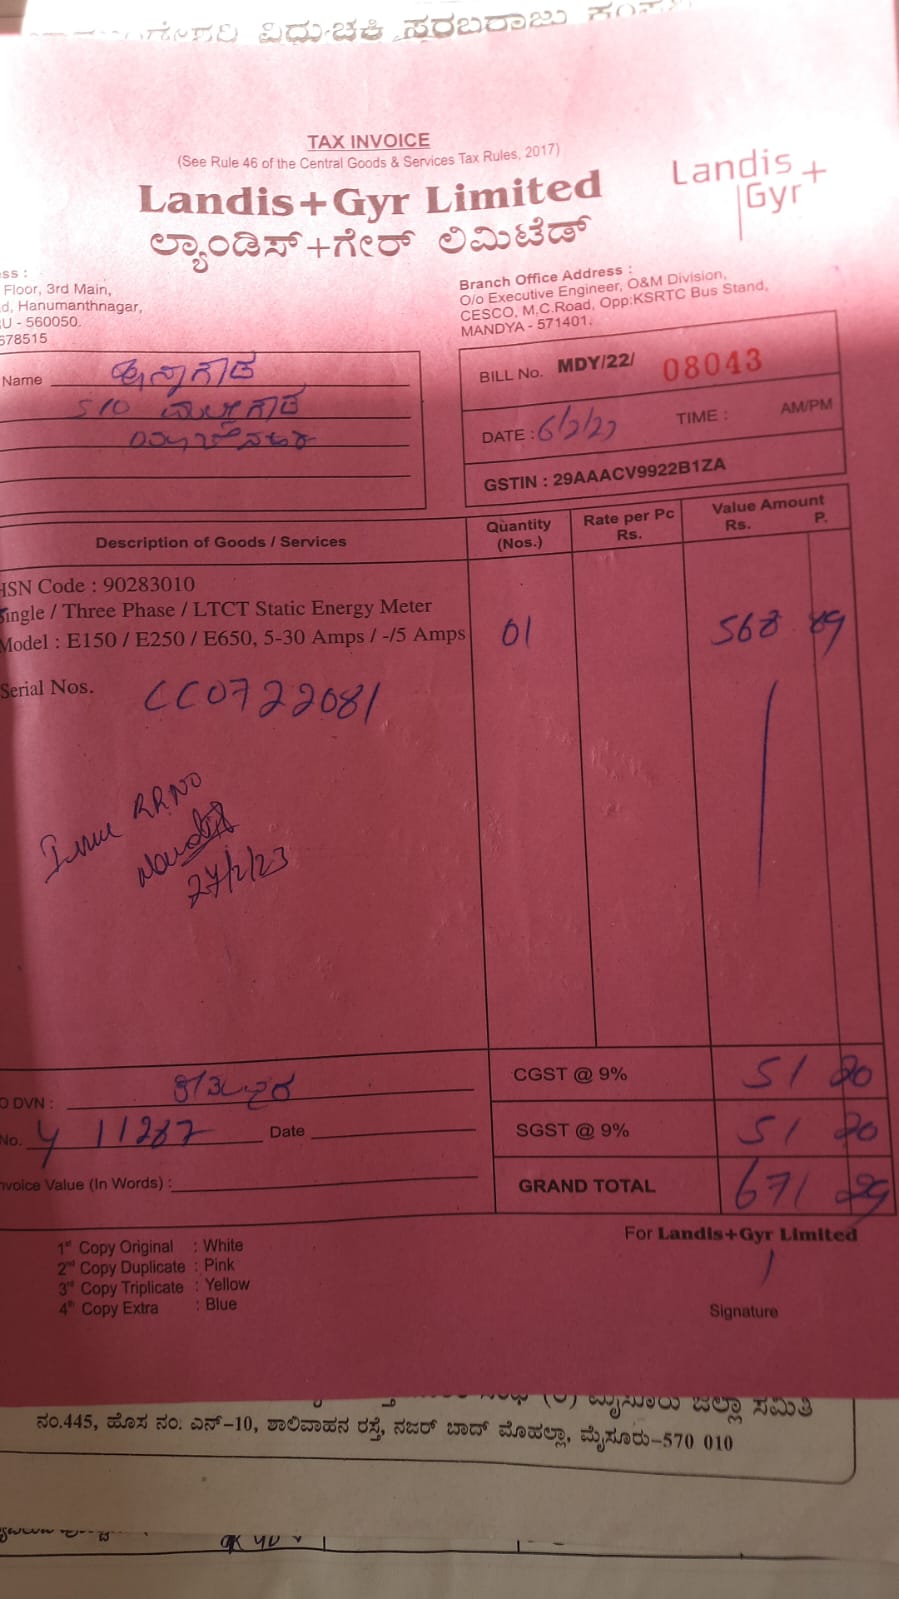 ವಿದ್ಯುಚ್ಛಕ್ತಿ ಸರಬರಾಜು
TAX INVOICE
(See Rule 46 of the Central Goods & Services Tax Rules, 2017)
Landis+Gyr Limited
ಲ್ಯಾಂಡಿಸ್+ಗೇರ್ ಲಿಮಿಟೆಡ್
Landis+
Gyr
ss :
Floor, 3rd Main,
d, Hanumanthnagar,
U - 560050.
678515
Branch Office Address :
O/o Executive Engineer, O&M Division,
CESCO, M.C.Road, Opp:KSRTC Bus Stand,
MANDYA - 571401.
Name
S/O
BILL No. MDY/22/ 08043
DATE : 6/2/23 TIME : AM/PM
GSTIN : 29AAACV9922B1ZA
Description of Goods / Services Quantity (Nos.) Rate per Pc Rs. Value Amount Rs. P.
HSN Code : 90283010
Single / Three Phase / LTCT Static Energy Meter
Model : E150 / E250 / E650, 5-30 Amps / -/5 Amps 01 568 89
Serial Nos. CC0722081
Issue RRNO
27/2/23
CGST @ 9% 51 20
O DVN :
SGST @ 9% 51 20
No. 4 11287 Date
nvoice Value (In Words) :
GRAND TOTAL 671 29
For Landis+Gyr Limited
1st Copy Original : White
2nd Copy Duplicate : Pink
3rd Copy Triplicate : Yellow
4th Copy Extra : Blue
Signature
(ರಿ) ಮೈಸೂರು ಜಿಲ್ಲಾ ಸಮಿತಿ
ನಂ.445, ಹೊಸ ನಂ. ಎನ್-10, ಶಾಲಿವಾಹನ ರಸ್ತೆ, ನಜರ್ ಬಾದ್ ಮೊಹಲ್ಲಾ, ಮೈಸೂರು-570 010